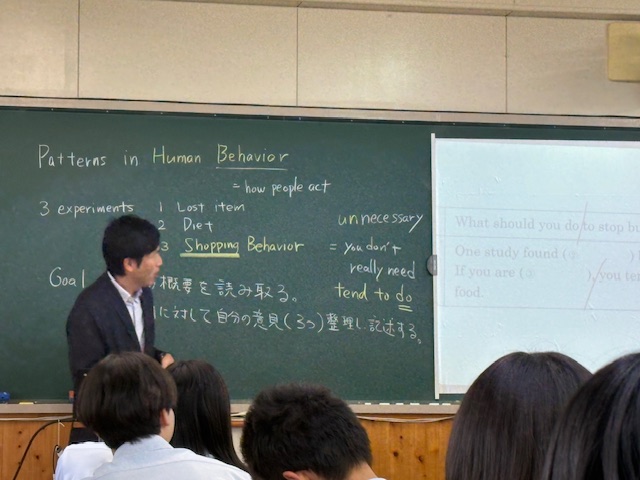 Patterns in Human Behavior
= how people act
3 experiments 1 Lost item
2 Diet
3 Shopping Behavior
unnecessary
= you don't
really need
tend to do
Goal
概要を読み取る。
に対して自分の意見(3つ)整理し記述する。
What should you do to stop bu
One study found (②
If you are (③ ), you ten
food.